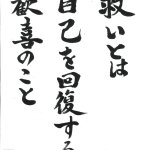 救いとは
自己を回復する
歓喜のこと